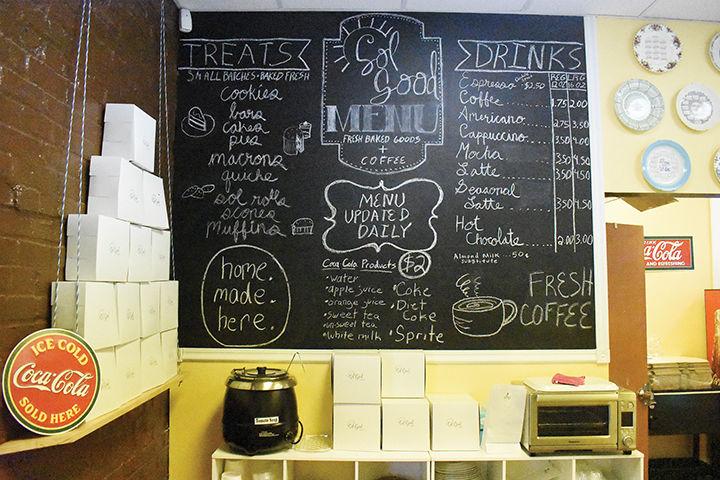 TREATS
SMALL BATCHES • BAKED FRESH
cookies
bars
cakes
pies
macrons
quiche
sol rolls
scones
muffins
home.
made.
here.
Sol
Good
MENU
FRESH BAKED GOODS
+
COFFEE
MENU
UPDATED
DAILY
Coca Cola Products $2
• water
• apple juice
• orange juice
• sweet tea
• unsweet tea
• white milk
• Coke
• Diet
Coke
• Sprite
DRINKS
REG LRG
12 oz 16 oz
Espresso $2.50
Coffee 1.75 2.00
Americano 2.75 3.50
Cappuccino 3.50 4.00
Mocha 3.50 4.50
Latte 3.50 4.50
Seasonal
Latte 3.50 4.50
Hot
Chocolate 2.00 3.00
Almond Milk .50¢
Substitute
FRESH
COFFEE
ICE COLD
Coca-Cola
SOLD HERE
DRINK
Coca-Cola
AND REFRESHING
Tomato Soup